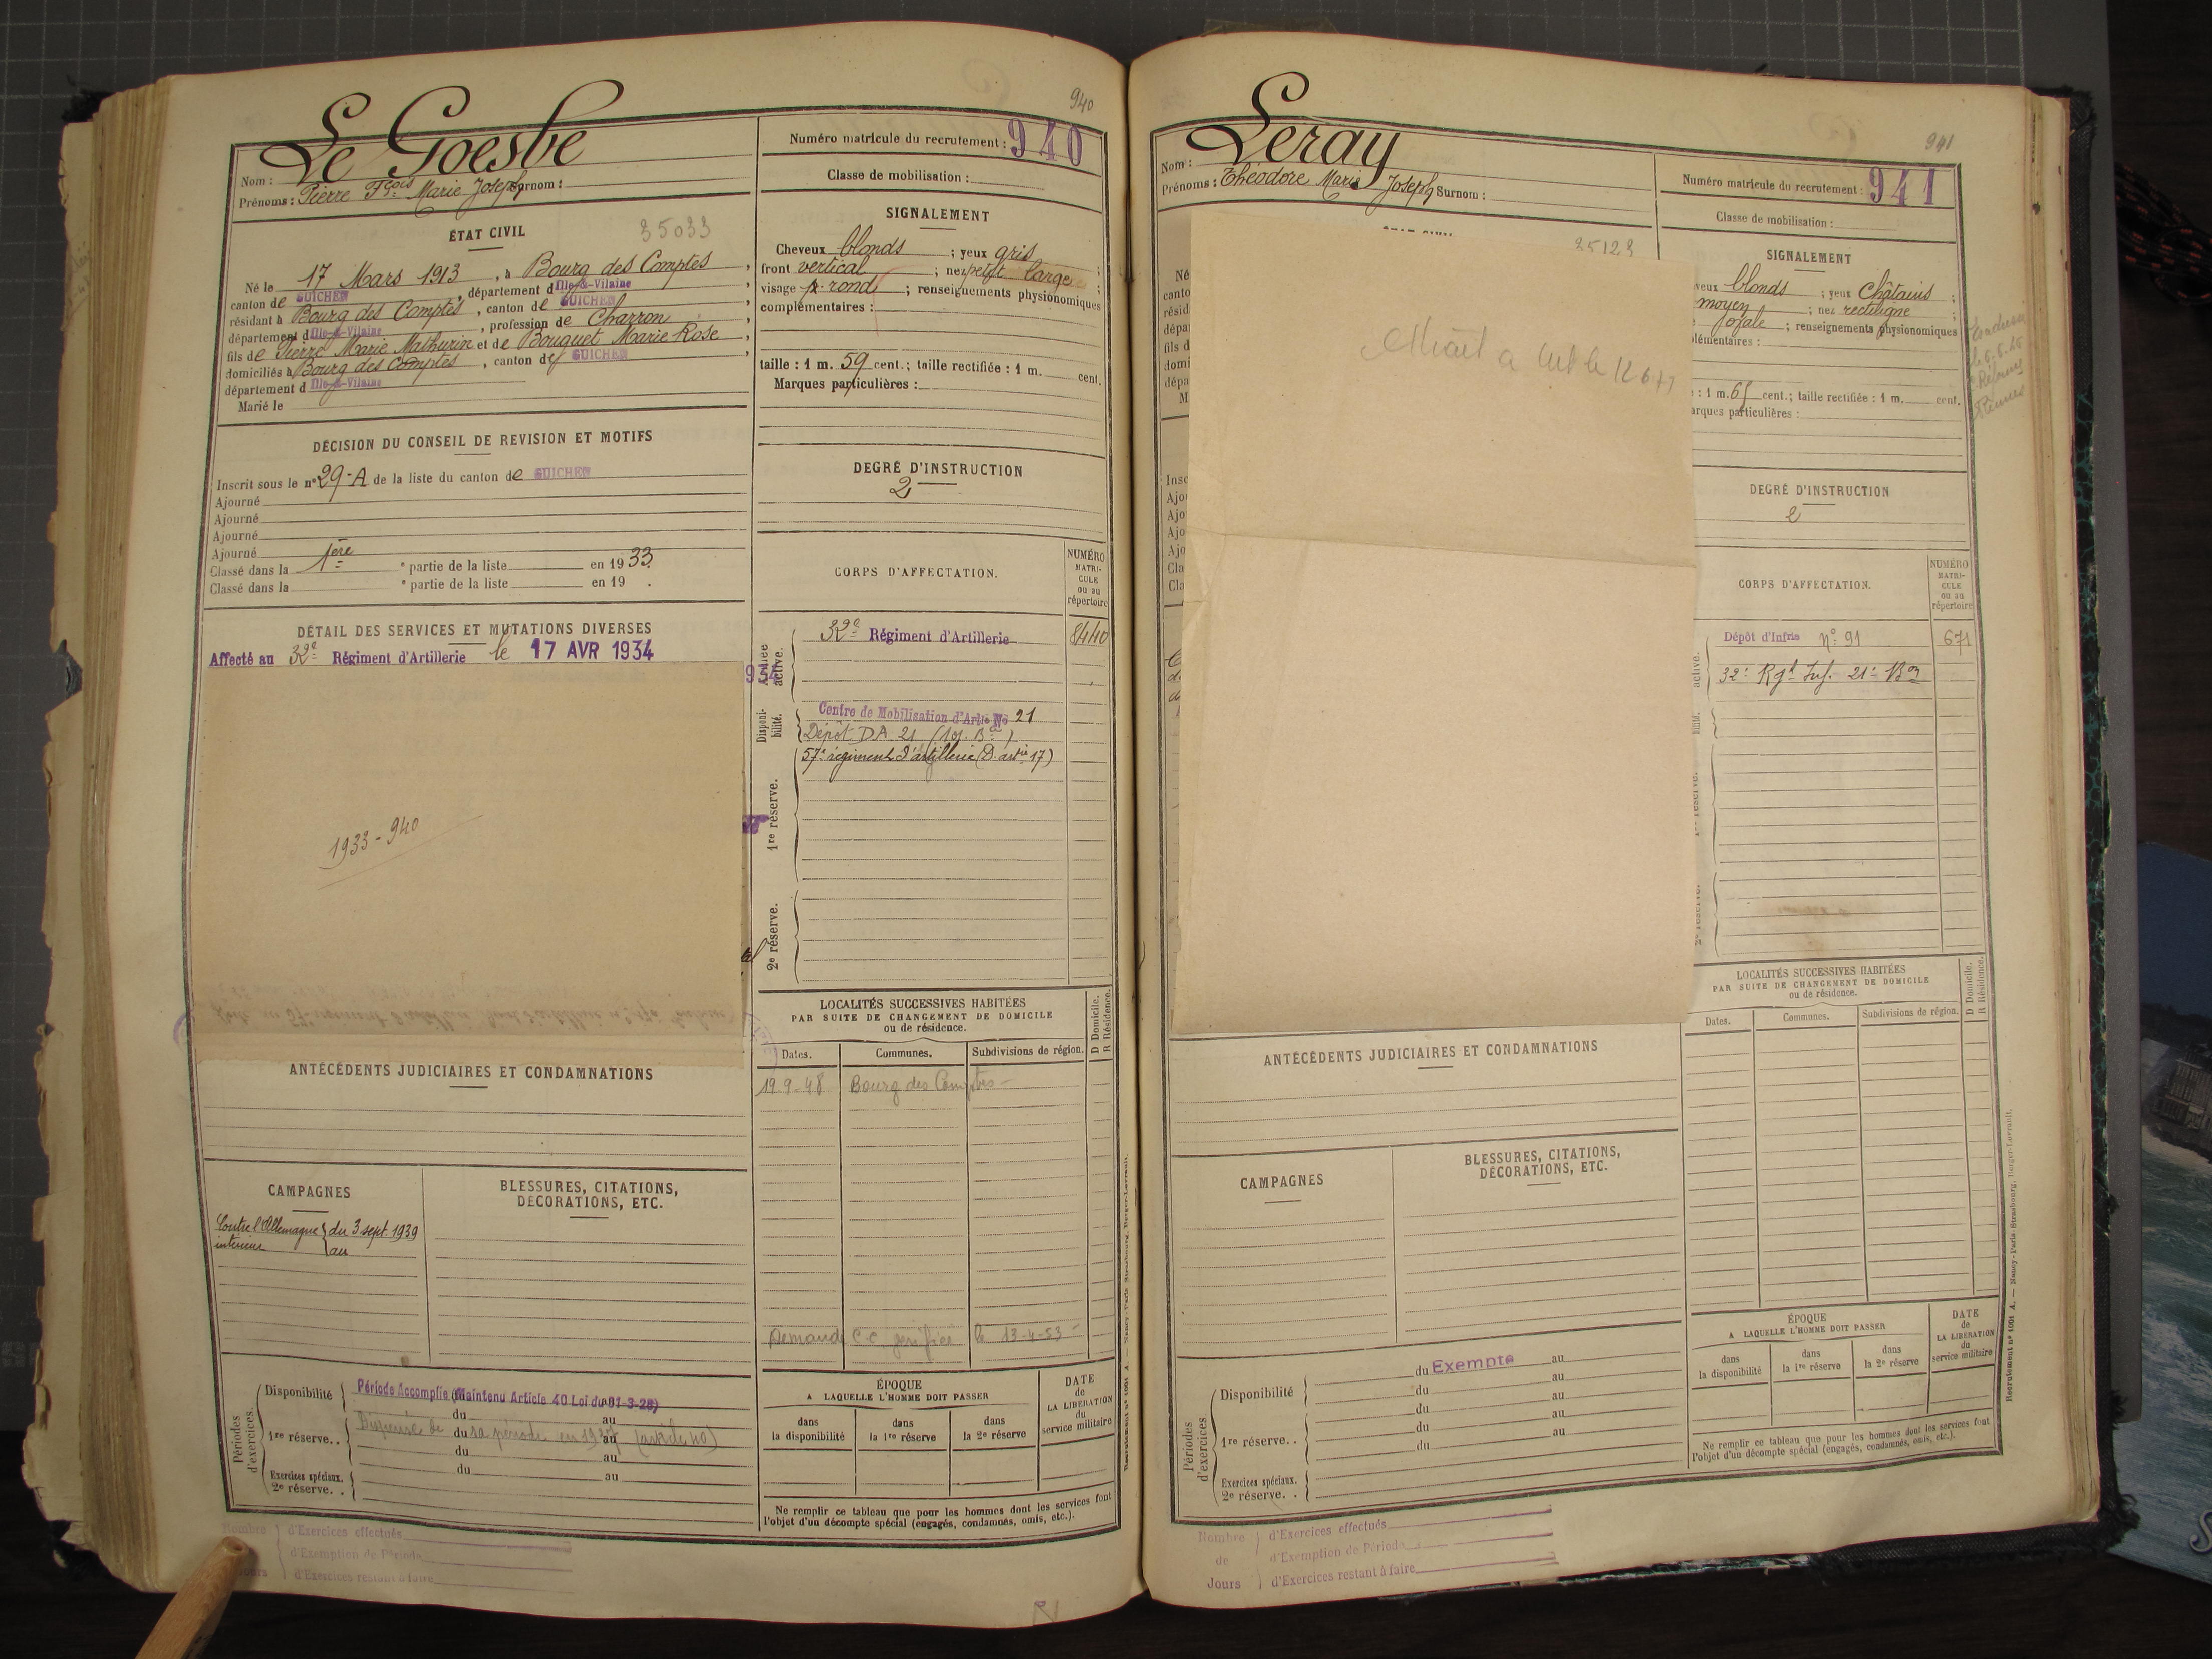 940
Le Goesbe
Nom :
Prénoms : Pierre Fçois Marie Joseph Surnom :
Numéro matricule du recrutement : 940
Classe de mobilisation :
ÉTAT CIVIL
35033
Né le 17 Mars 1913, à Bourg des Comptes,
canton de GUICHEN, département d Ille-&-Vilaine,
résidant à Bourg des Comptes, canton de GUICHEN,
département d Ille-&-Vilaine, profession de Charron,
fils de Pierre Marie Mathurin et de Bouquet Marie Rose,
domiciliés à Bourg des Comptes, canton de GUICHEN
département d Ille-&-Vilaine
Marié le
DÉCISION DU CONSEIL DE REVISION ET MOTIFS
Inscrit sous le n° 29-A de la liste du canton de GUICHEN
Ajourné
Ajourné
Ajourné
Ajourné
Classé dans la 1ère partie de la liste en 1933
Classé dans la partie de la liste en 19 .
DÉTAIL DES SERVICES ET MUTATIONS DIVERSES
Affecté au 32e Régiment d'Artillerie le 17 AVR 1934
1933 - 940
ANTÉCÉDENTS JUDICIAIRES ET CONDAMNATIONS
CAMPAGNES
Contre l'Allemagne du 3 sept. 1939
intérieur au
BLESSURES, CITATIONS,
DÉCORATIONS, ETC.
Périodes d'exercices.
Disponibilité Période Accomplie (Maintenu Article 40 Loi du 31-3-28)
du au
1re réserve. . Dispensé de du sa période en 1937 au (article 40)
du au
du au
Exercices spéciaux.
2e réserve. .
Nombre
Jours
d'Exercices effectués
d'Exemption de Période
d'Exercices restant à faire
SIGNALEMENT
Cheveux blonds ; yeux gris ;
front vertical ; nez petit large ;
visage p. rond ; renseignements physionomiques
complémentaires :
taille : 1 m. 59 cent.; taille rectifiée : 1 m. cent.
Marques particulières :
DEGRÉ D'INSTRUCTION
2
CORPS D'AFFECTATION.
NUMÉRO
MATRI-
CULE
ou au
répertoire
934
active.
32e Régiment d'Artillerie 8440
Disponi-
bilité.
Centre de Mobilisation d'Artie No 21
Dépôt DA 21
57e régiment d'artillerie (D. artie 17)
1re réserve.
2e réserve.
LOCALITÉS SUCCESSIVES HABITÉES
PAR SUITE DE CHANGEMENT DE DOMICILE
ou de résidence.
D Domicile.
R Résidence.
Dates.
Communes.
Subdivisions de région.
19.9-48 Bourg des Comptes -
Demande C.C. le 13-4-53 -
ÉPOQUE
A LAQUELLE L'HOMME DOIT PASSER
dans
la disponibilité
dans
la 1re réserve
dans
la 2e réserve
DATE
de
LA LIBÉRATION
du
service militaire
Ne remplir ce tableau que pour les hommes dont les services font
l'objet d'un décompte spécial (engagés, condamnés, omis, etc.).
941
Leray
Nom :
Prénoms : Théodore Marie Joseph Surnom :
Numéro matricule du recrutement : 941
Classe de mobilisation :
35123
Né
canto
résid
dépa
fils d
domi
dépa
M
Insc
Ajo
Ajo
Ajo
Ajo
Cla
Cla
ANTÉCÉDENTS JUDICIAIRES ET CONDAMNATIONS
CAMPAGNES
BLESSURES, CITATIONS,
DÉCORATIONS, ETC.
Périodes d'exercices
Disponibilité
du Exempte au
du au
du au
1re réserve. .
du au
du au
Exercices spéciaux.
2e réserve. .
Nombre
de
Jours
d'Exercices effectués
d'Exemption de Période
d'Exercices restant à faire
SIGNALEMENT
veux blonds ; yeux châtains ;
moyen ; nez rectiligne ;
ovale ; renseignements physionomiques
plémentaires :
: 1 m. 65 cent.; taille rectifiée : 1 m. cent.
arques particulières :
DEGRÉ D'INSTRUCTION
2
CORPS D'AFFECTATION.
NUMÉRO
MATRI-
CULE
ou au
répertoire
active.
Dépôt d'Infrie n° 91 671
32e Rgt Inf. 21e Bon
bilité.
2e réserve.
LOCALITÉS SUCCESSIVES HABITÉES
PAR SUITE DE CHANGEMENT DE DOMICILE
ou de résidence.
D Domicile.
R Résidence.
Dates.
Communes.
Subdivisions de région.
ÉPOQUE
A LAQUELLE L'HOMME DOIT PASSER
dans
la disponibilité
dans
la 1re réserve
dans
la 2e réserve
DATE
de
LA LIBÉRATION
du
service militaire
Ne remplir ce tableau que pour les hommes dont les services font
l'objet d'un décompte spécial (engagés, condamnés, omis, etc.).
Recrutement n° 1001 A. — Nancy-Paris-Strasbourg, Berger-Levrault.